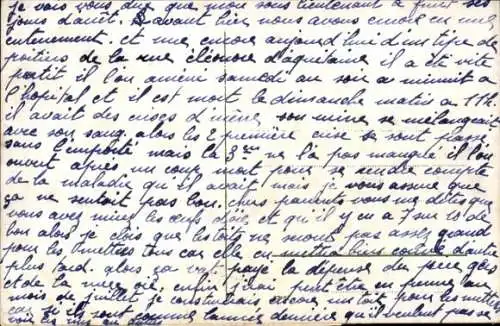 je vais vous dire que mon sous lieutenant a fini ses
jours d'arrêt. avant hier nous avons encore eu un
enterrement. et une encore aujourd'hui d'un tipe de
poitiers de la rue éléonore d'aquetaine il a été vite
partit il l'on amené samedi au soir a minuit a
l'hopital et il est mort le dimanche matin a 11h
il avait des crises d' son se mélangeait
avec son sang. alors les 2 première crise se sont passé
sans l'emporté mais la 3eme ne l'a pas manqué il l'on
ouvert après un coup mort pour se rendre compte
de la maladie qu'il avait mais je vous assure que
ça ne sentait pas bon. chers parents vous me dites que
vous avez mis les œufs d'oie et qu'il y en a 7 sur 10 de
bon alors je crois que les toits ne seront pas assez grand
pour les mettres tous car elle en mettra bien couvé d'autre
plus tard. alors ça va payé la dépense du père
et de la mère oie. enfin j'irai peut être en perme au
mois de juillet je construirais encore un toit pour les mettre
car si ils sont comme l'année dernière qu'il veulent pas se
voir les uns au